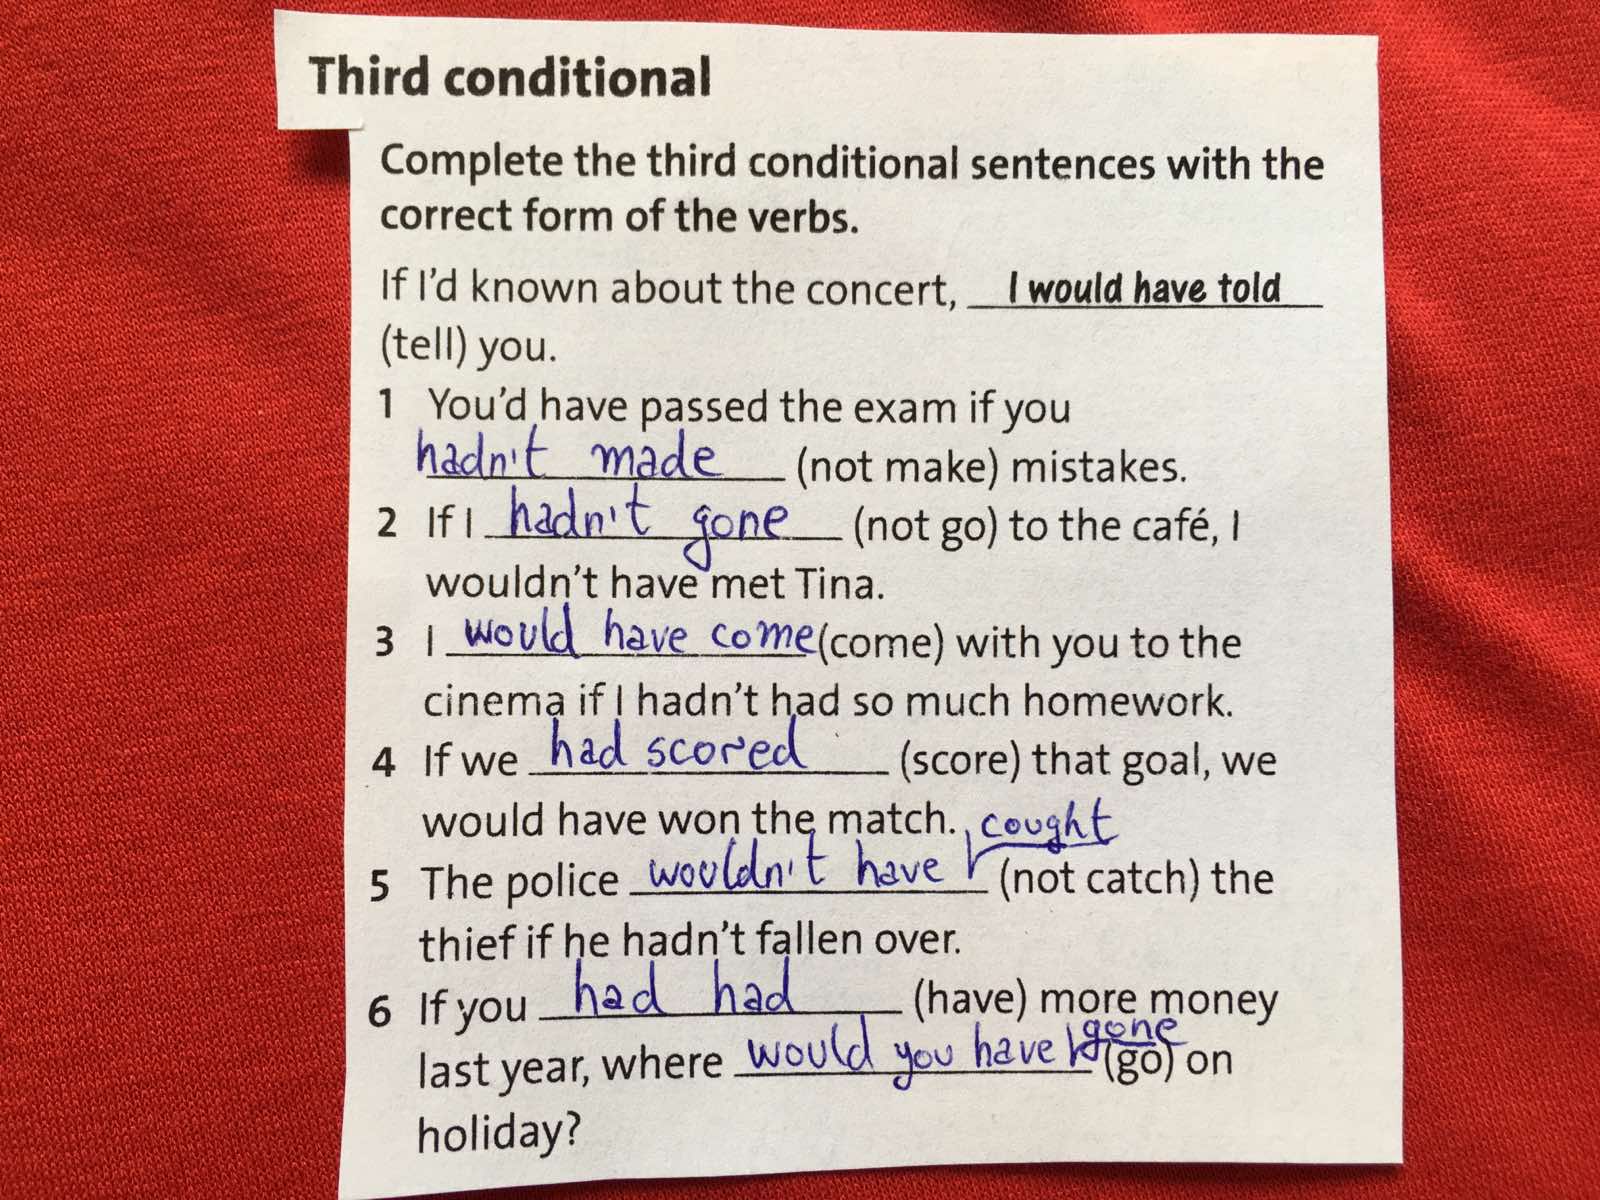 Third conditional
Complete the third conditional sentences with the
correct form of the verbs.
If I'd known about the concert, I would have told
(tell) you.
1 You'd have passed the exam if you
hadn't made (not make) mistakes.
2 If I hadn't gone (not go) to the café, I
wouldn't have met Tina.
3 I would have come (come) with you to the
cinema if I hadn't had so much homework.
4 If we had scored (score) that goal, we
would have won the match.
5 The police wouldn't have cought (not catch) the
thief if he hadn't fallen over.
6 If you had had (have) more money
last year, where would you have gone (go) on
holiday?